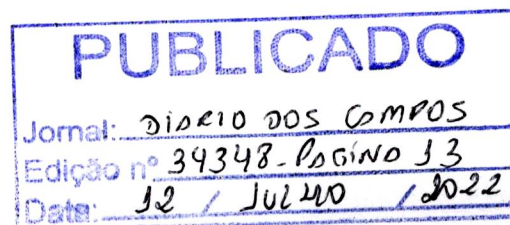 PUBLICADO
Jornal: DIÁRIO DOS CAMPOS
Edição nº 34348 - PÁGINA 13
Data: 12 / JULHO / 2022